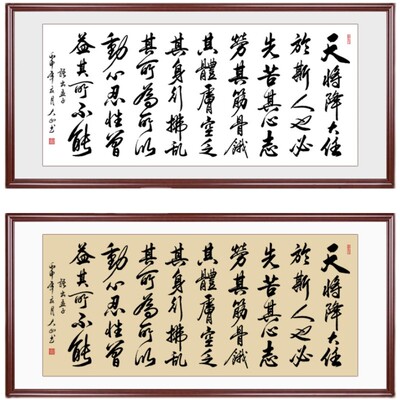 天將降大任
於斯人也必
先苦其心志
勞其筋骨餓
其體膚空乏
其身行拂乱
其所為所以
動心忍性曾
益其所不能
語出孟子
丙申年月
天將降大任
於斯人也必
先苦其心志
勞其筋骨餓
其體膚空乏
其身行拂乱
其所為所以
動心忍性曾
益其所不能
語出孟子
丙申年月